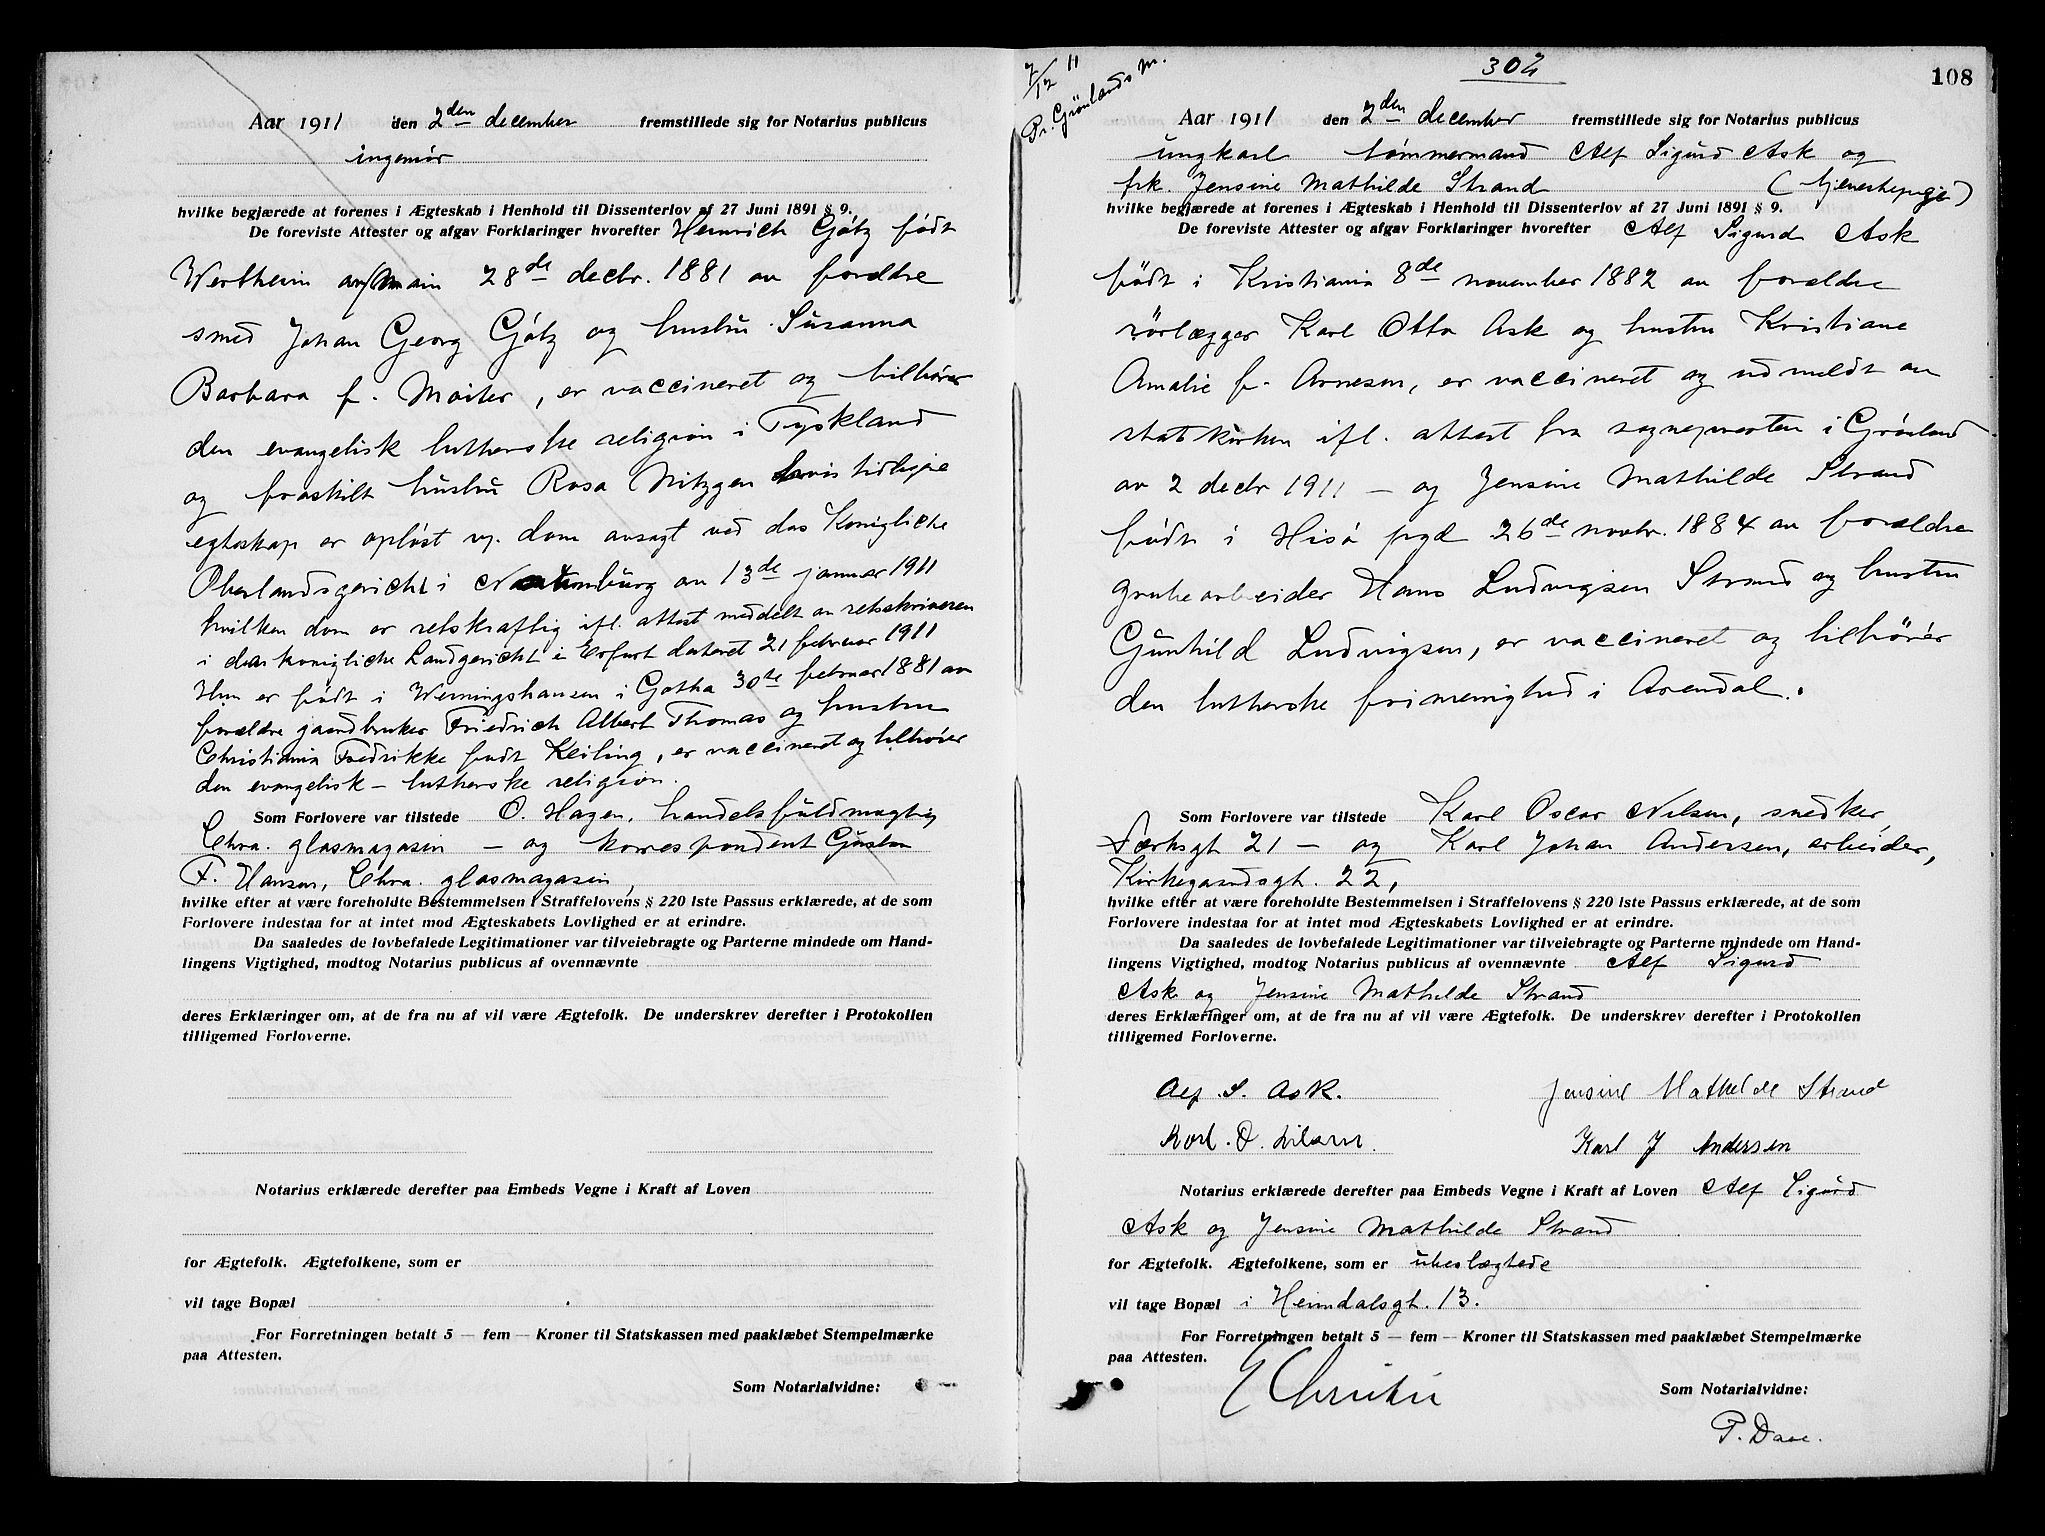 Aar 1911 den 2den december fremstillede sig for Notarius publicus
ingeniør
hvilke begjærede at forenes i Ægteskab i Henhold til Dissenterlov af 27 Juni 1891 § 9.
De foreviste Attester og afgav Forklaringer hvorefter Heinrich Götz født
Wertheim a/Main 28de decbr. 1881 av forældre
smed Johan Georg Götz og hustru Susanna
Barbara f. Moiter, er vaccineret og tilhører
den evangelisk lutherske religion i Tyskland
og fraskilt hustru Rosa Nitzgen hvis tidligere
egteskap er opløst v. dom avsagt ved das Konigliche
Oberlandsgericht i Naumburg av 13de januar 1911
hvilken dom er retskraftig ifl. attest meddelt av retsskriveren
i das konigliche Landgericht i Erfurt dateret 21 februar 1911
Hun er født i Werningshausen i Gotha 30te februar 1881 av
forældre gaardbruker Friedrich Albert Thomas og hustru
Christiania Fredrikke født Keiling, er vaccineret og tilhører
den evangelisk - lutherske religion.
Som Forlovere var tilstede O. Hagen, handelsfuldmægtig
Chra. glasmagasin - og korrespondent Gustav
F. Hansen, Chra. glasmagasin,
hvilke efter at være foreholdte Bestemmelsen i Straffelovens § 220 1ste Passus erklærede, at de som
Forlovere indestaa for at intet mod Ægteskabets Lovlighed er at erindre.
Da saaledes de lovbefalede Legitimationer var tilveiebragte og Parterne mindede om Hand-
lingens Vigtighed, modtog Notarius publicus af ovennævnte
deres Erklæringer om, at de fra nu af vil være Ægtefolk. De underskrev derefter i Protokollen
tilligemed Forloverne.
Notarius erklærede derefter paa Embeds Vegne i Kraft af Loven
for Ægtefolk. Ægtefolkene, som er
vil tage Bopæl
For Forretningen betalt 5 — fem — Kroner til Statskassen med paaklæbet Stempelmærke
paa Attesten.
Som Notarialvidne:
7/12 11
Pr. Grønlands m.
302
108
Aar 1911 den 2den december fremstillede sig for Notarius publicus
ungkarl tømmermand Alf Sigurd Ask og
frk. Jensine Mathilde Strand (tjenestepige)
hvilke begjærede at forenes i Ægteskab i Henhold til Dissenterlov af 27 Juni 1891 § 9.
De foreviste Attester og afgav Forklaringer hvorefter Alf Sigurd Ask
født i Kristiania 8de november 1882 av forældre
rørlægger Karl Otto Ask og hustru Kristiane
Amalie f. Arnesen, er vaccineret og udmeldt av
statskirken ifl. attest fra sognepresten i Grønland
av 2 decbr 1911 - og Jensine Mathilde Strand
født i Hisö pgd 26de novbr. 1884 av forældre
grubearbeider Hans Ludvigsen Strand og hustru
Gunhild Ludvigsen, er vaccineret og tilhører
den lutherske frimenighed i Arendal.
Som Forlovere var tilstede Karl Oscar Nilsen, snedker
Færksgt 21 - og Karl Johan Andersen, arbeider,
Kirkegaardsgt. 22,
hvilke efter at være foreholdte Bestemmelsen i Straffelovens § 220 1ste Passus erklærede, at de som
Forlovere indestaa for at intet mod Ægteskabets Lovlighed er at erindre.
Da saaledes de lovbefalede Legitimationer var tilveiebragte og Parterne mindede om Hand-
lingens Vigtighed, modtog Notarius publicus af ovennævnte Alf Sigurd
Ask og Jensine Mathilde Strand
deres Erklæringer om, at de fra nu af vil være Ægtefolk. De underskrev derefter i Protokollen
tilligemed Forloverne.
Alf. S. Ask. Jensine Mathilde Strand
Karl. O. Nilsen. Karl J Andersen
Notarius erklærede derefter paa Embeds Vegne i Kraft af Loven Alf Sigurd
Ask og Jensine Mathilde Strand
for Ægtefolk. Ægtefolkene, som er ubeslægtede
vil tage Bopæl i Heimdalsgt. 13.
For Forretningen betalt 5 — fem — Kroner til Statskassen med paaklæbet Stempelmærke
paa Attesten.
E Christie
Som Notarialvidne:
P. Daae.